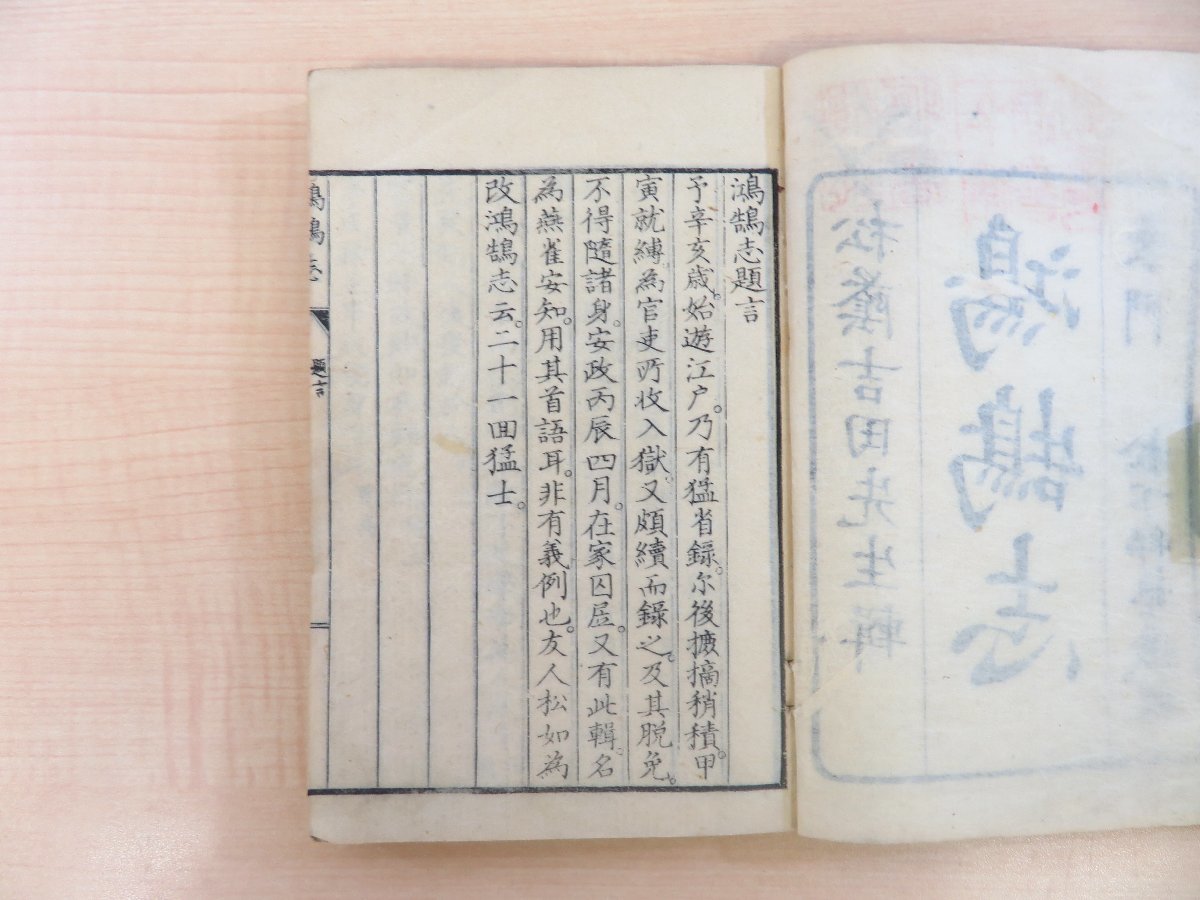 松陰吉田先生輯
鴻鵠志
鴻鵠志題言
予辛亥歳。始遊江戸。乃有猛省録。尓後摭摘稍積。甲
寅就縛。為官吏所收入獄。又頗續而録之。及其脱免。
不得隨諸身。安政丙辰四月。在家囚居。又有此輯。名
為燕雀安知。用其首語耳。非有義例也。友人松如為
改鴻鵠志云。二十一囬猛士。
鴻鵠志
題言